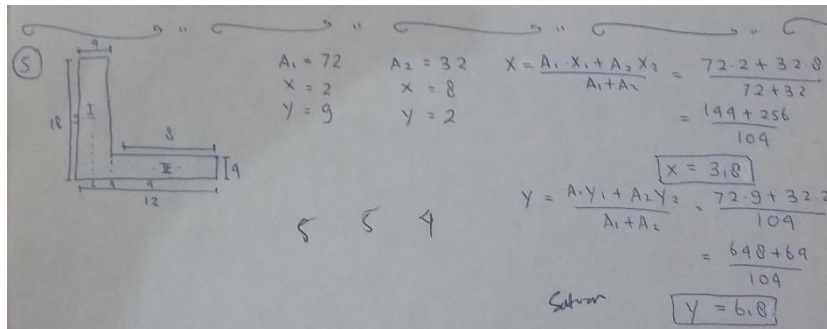 5
4
18
I
8
II
4
2 4 4
12
A₁ = 72
X = 2
Y = 9
A₂ = 32
X = 8
Y = 2
X = A₁·X₁ + A₂X₂ / A₁ + A₂ = 72·2 + 32·8 / 72 + 32
= 144 + 256 / 104
X = 3,8
Y = A₁Y₁ + A₂Y₂ / A₁ + A₂ = 72·9 + 32·2 / 104
= 648 + 64 / 104
Y = 6,8
5 5 4